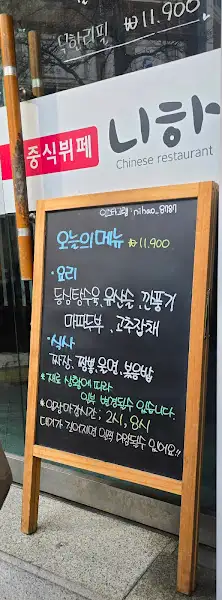 무한리필 ₩11,900
중식뷔페 니하
Chinese restaurant
인스타그램: nihao_8787
오늘의메뉴 ₩11,900
·요리
등심탕수육, 유산슬, 깐풍기
마파두부, 고추잡채
·식사
짜장, 짬뽕, 울면, 볶음밥
*재료 상황에 따라
일부 변경될수 있습니다.
*입장마감시간; 2시, 8시
대기가 길어지면 일찍 마감될수 있어요!!